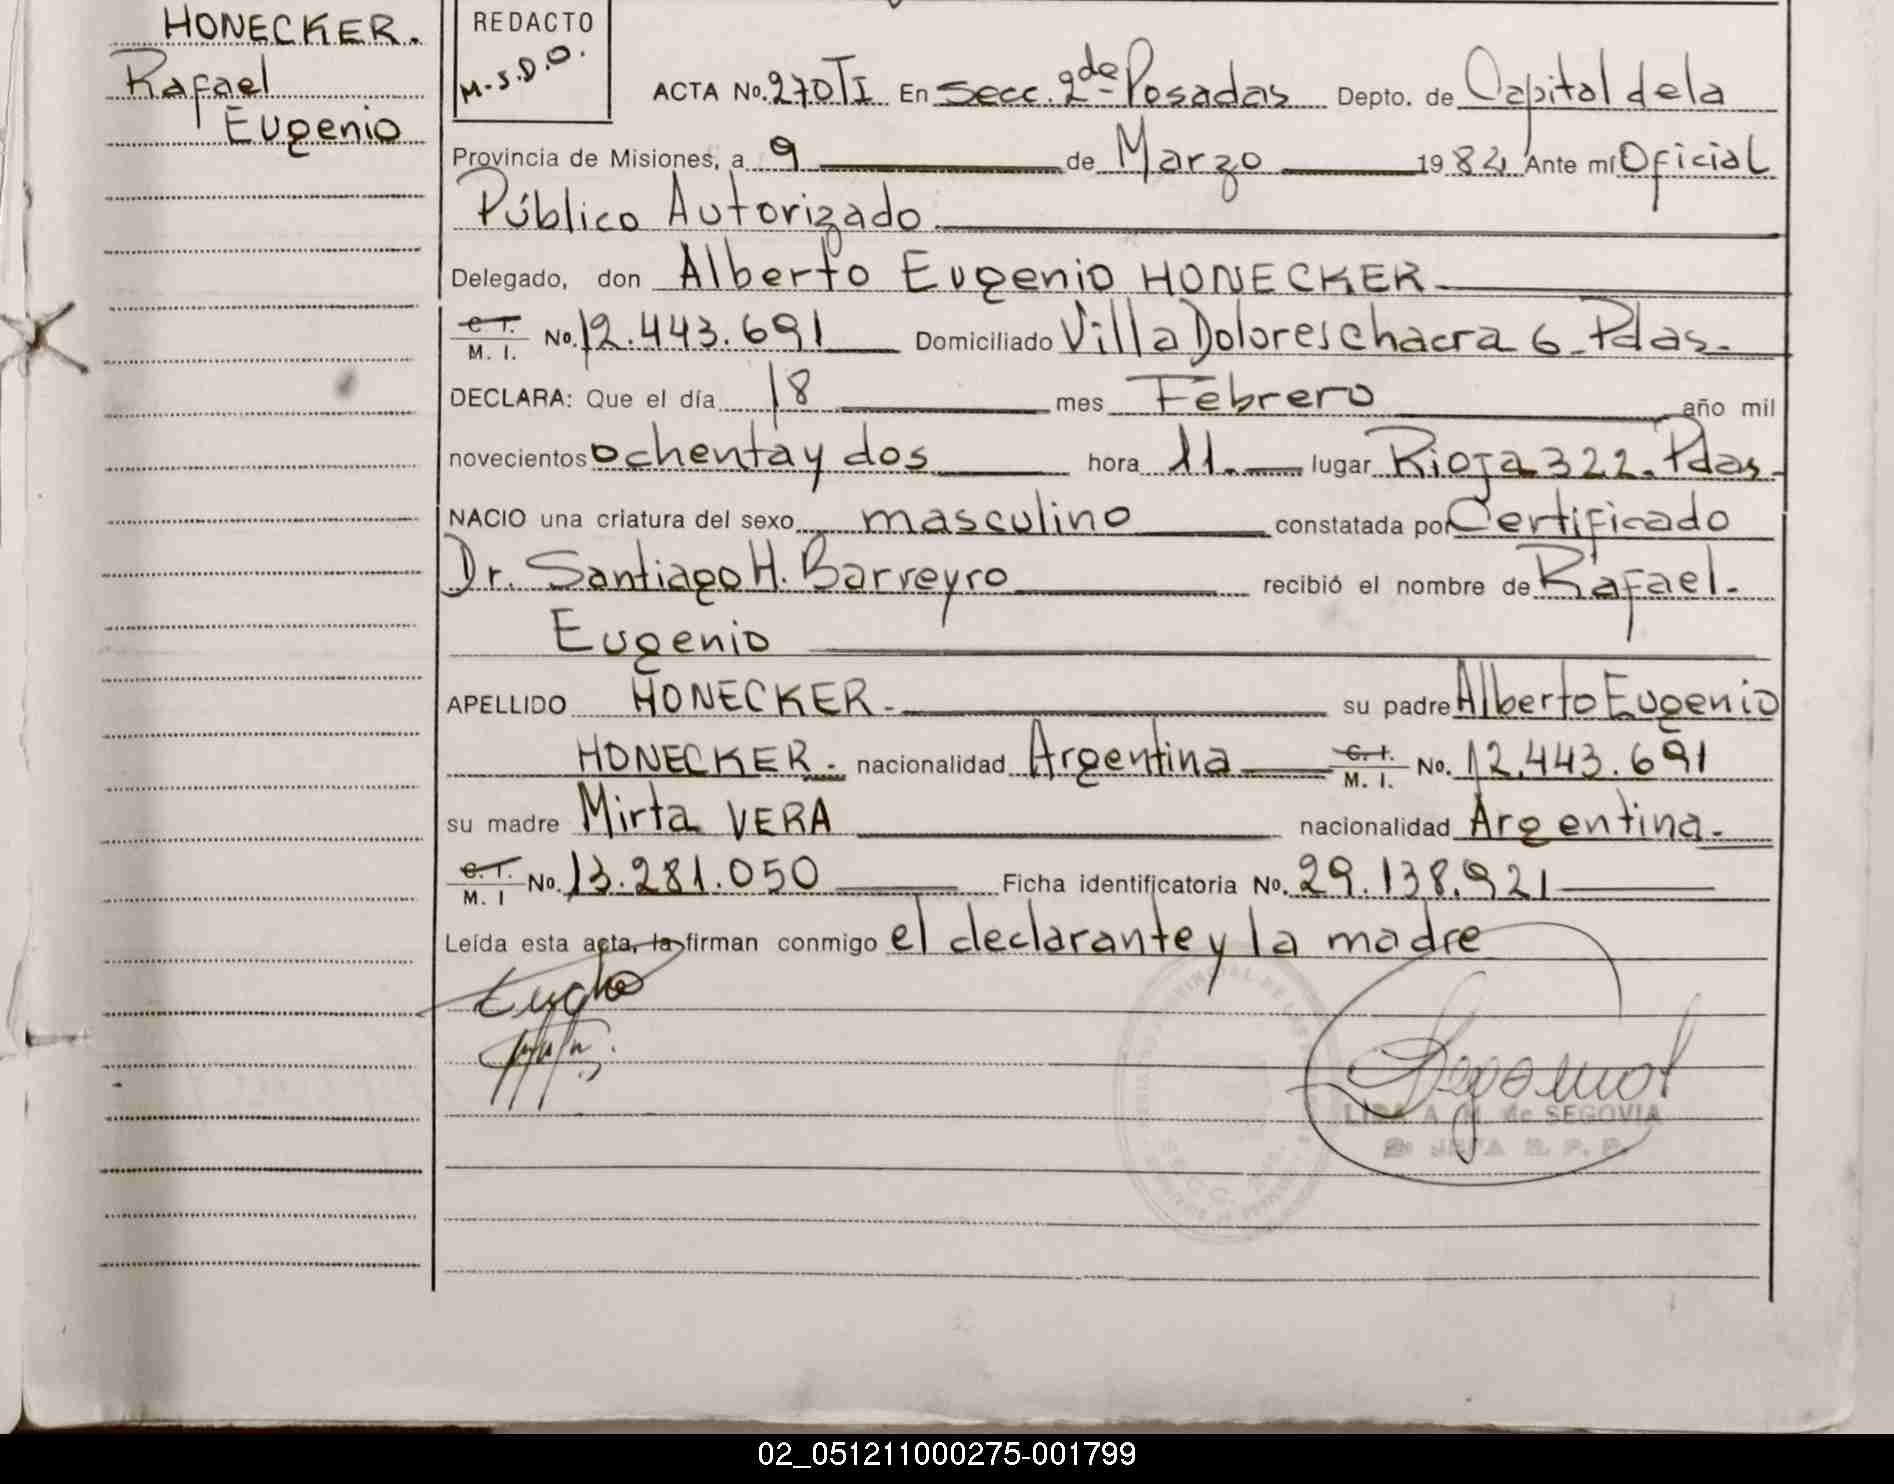 HONECKER.
Rafael
Eugenio
REDACTO
M.S.D.O.
ACTA No. 270 TI En Secc. 2da Posadas Depto. de Capital de la
Provincia de Misiones, a 9 de Marzo 1982 Ante mí Oficial
Público Autorizado
Delegado, don Alberto Eugenio HONECKER
C. I. M. I. No. 12.443.691 Domiciliado Villa Dolores chacra 6. Pdas.
DECLARA: Que el día 18 mes Febrero año mil
novecientos ochenta y dos hora 11. lugar Rioja 322. Pdas.
NACIO una criatura del sexo masculino constatada por Certificado
Dr. Santiago H. Barreyro recibió el nombre de Rafael.
Eugenio
APELLIDO HONECKER. su padre Alberto Eugenio
HONECKER. nacionalidad Argentina C. I. M. I. No. 12.443.691
su madre Mirta VERA nacionalidad Argentina.
C. I. M. I No. 13.281.050 Ficha identificatoria No. 29.138.921
Leída esta acta, la firman conmigo el declarante y la madre
A. M. de SEGOVIA
JEFA R. P. P.
02_051211000275-001799